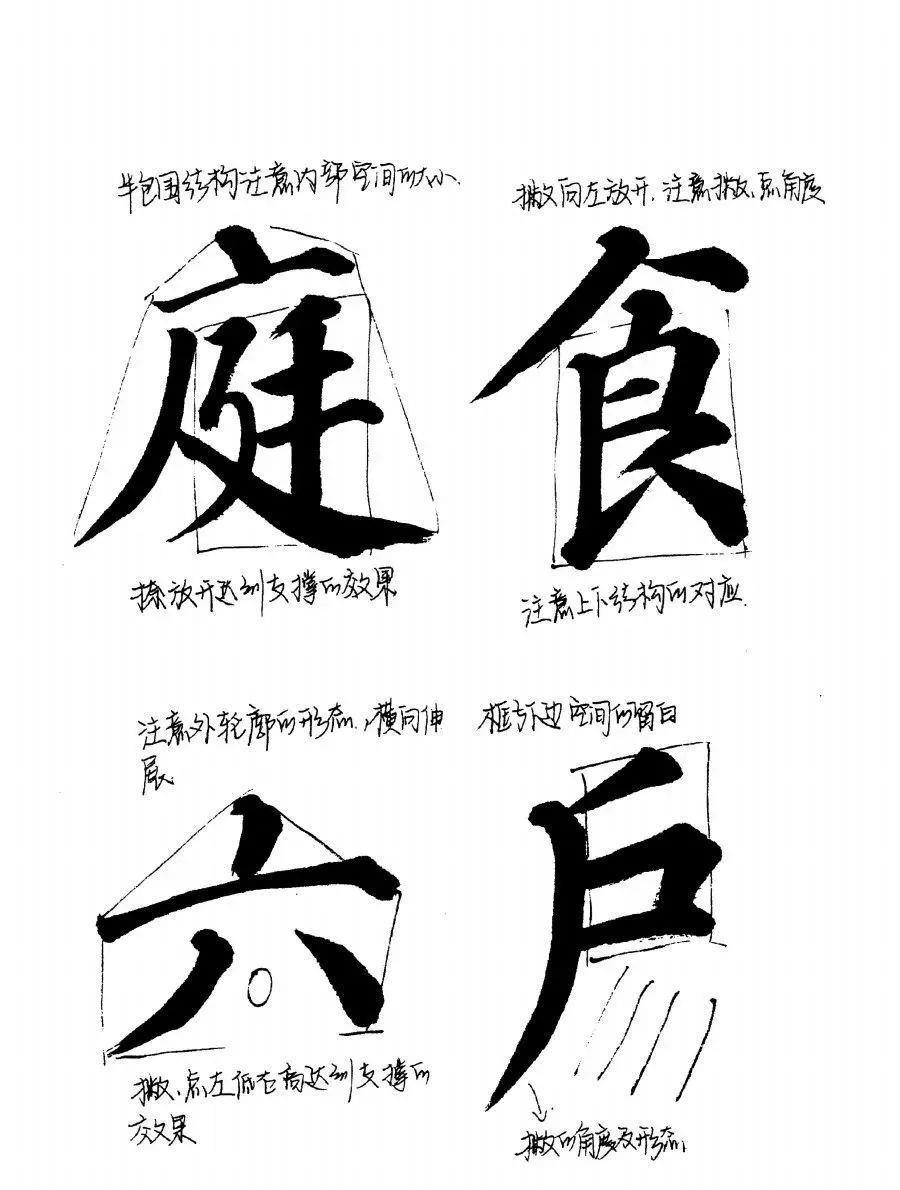 半包围结构注意内部空间的大小.
撇向左放开.注意撇、点角度
庭
食
捺放开达到支撑的效果
注意上下结构的对应.
注意外轮廓的形态,横向伸
展
框外边空间的留白
六
户
撇、点左低右高达到支撑的
效果
撇的角度及形态.